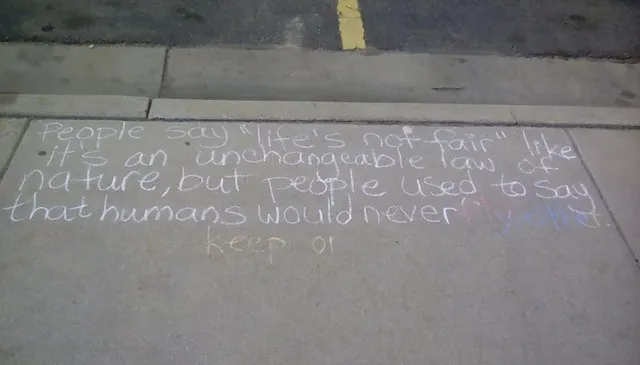 People say "life's not fair" like
it's an unchangeable law of
nature, but people used to say
that humans would never
keep or